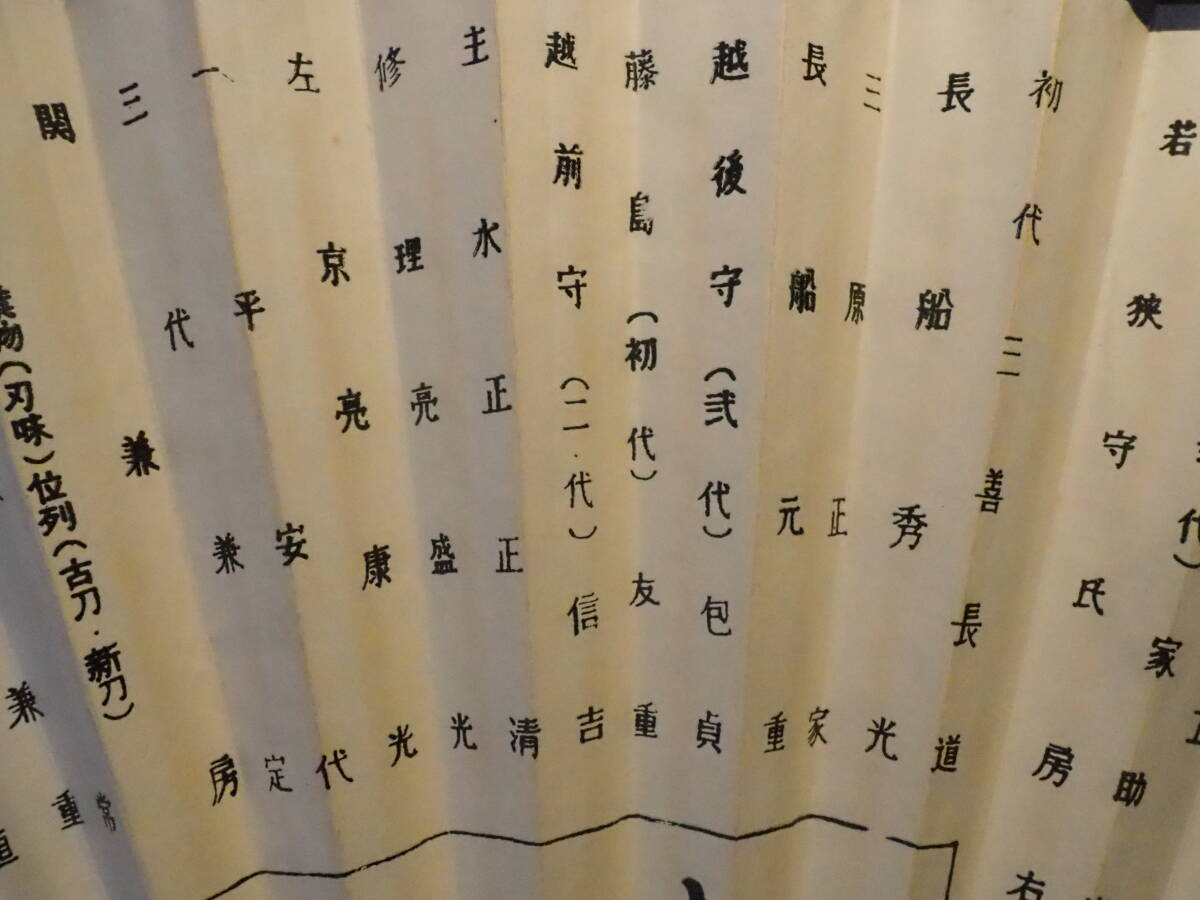 代）家助
若狭守氏房
初代三善長道
長船秀光
三原正家
長船元重
越後守（弐代）包貞
藤島（初代）友重
越前守（二代）信吉
主水正正清
修理亮盛光
左京亮康光
一平安代
三代兼定
関兼房
業物（刃味）位列（古刀・新刀）
常
兼重
右